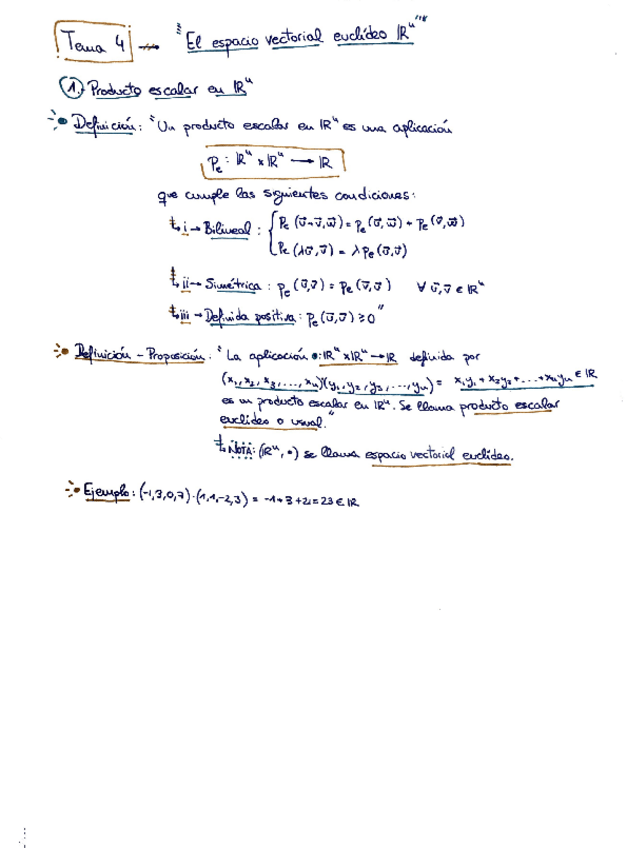 Tema 4 → "El espacio vectorial euclídeo ℝⁿ"
1. Producto escalar en ℝⁿ
Definición: "Un producto escalar en ℝⁿ es una aplicación
Pe: ℝⁿ x ℝⁿ → ℝ
que cumple las siguientes condiciones:
↳ i → Bilineal: { Pe (ū+v̄, w̄) = Pe (ū, w̄) + Pe (v̄, w̄)
Pe (λū, v̄) = λ Pe (ū, v̄)
↳ ii → Simétrica: Pe (ū, v̄) = Pe (v̄, ū) ∀ ū, v̄ ∈ ℝⁿ
↳ iii → Definida positiva: Pe (ū, ū) ≥ 0"
Definición - Proposición: "La aplicación •: ℝⁿ x ℝⁿ → ℝ definida por
(x₁, x₂, x₃, ..., xₙ)(y₁, y₂, y₃, ..., yₙ) = x₁y₁ + x₂y₂ + ... + xₙyₙ ∈ ℝ
es un producto escalar en ℝⁿ. Se llama producto escalar
euclídeo o usual."
↳ NOTA: (ℝⁿ, •) se llama espacio vectorial euclídeo.
Ejemplo: (-1,3,0,7)·(1,1,-2,3) = -1+3+21=23 ∈ ℝ